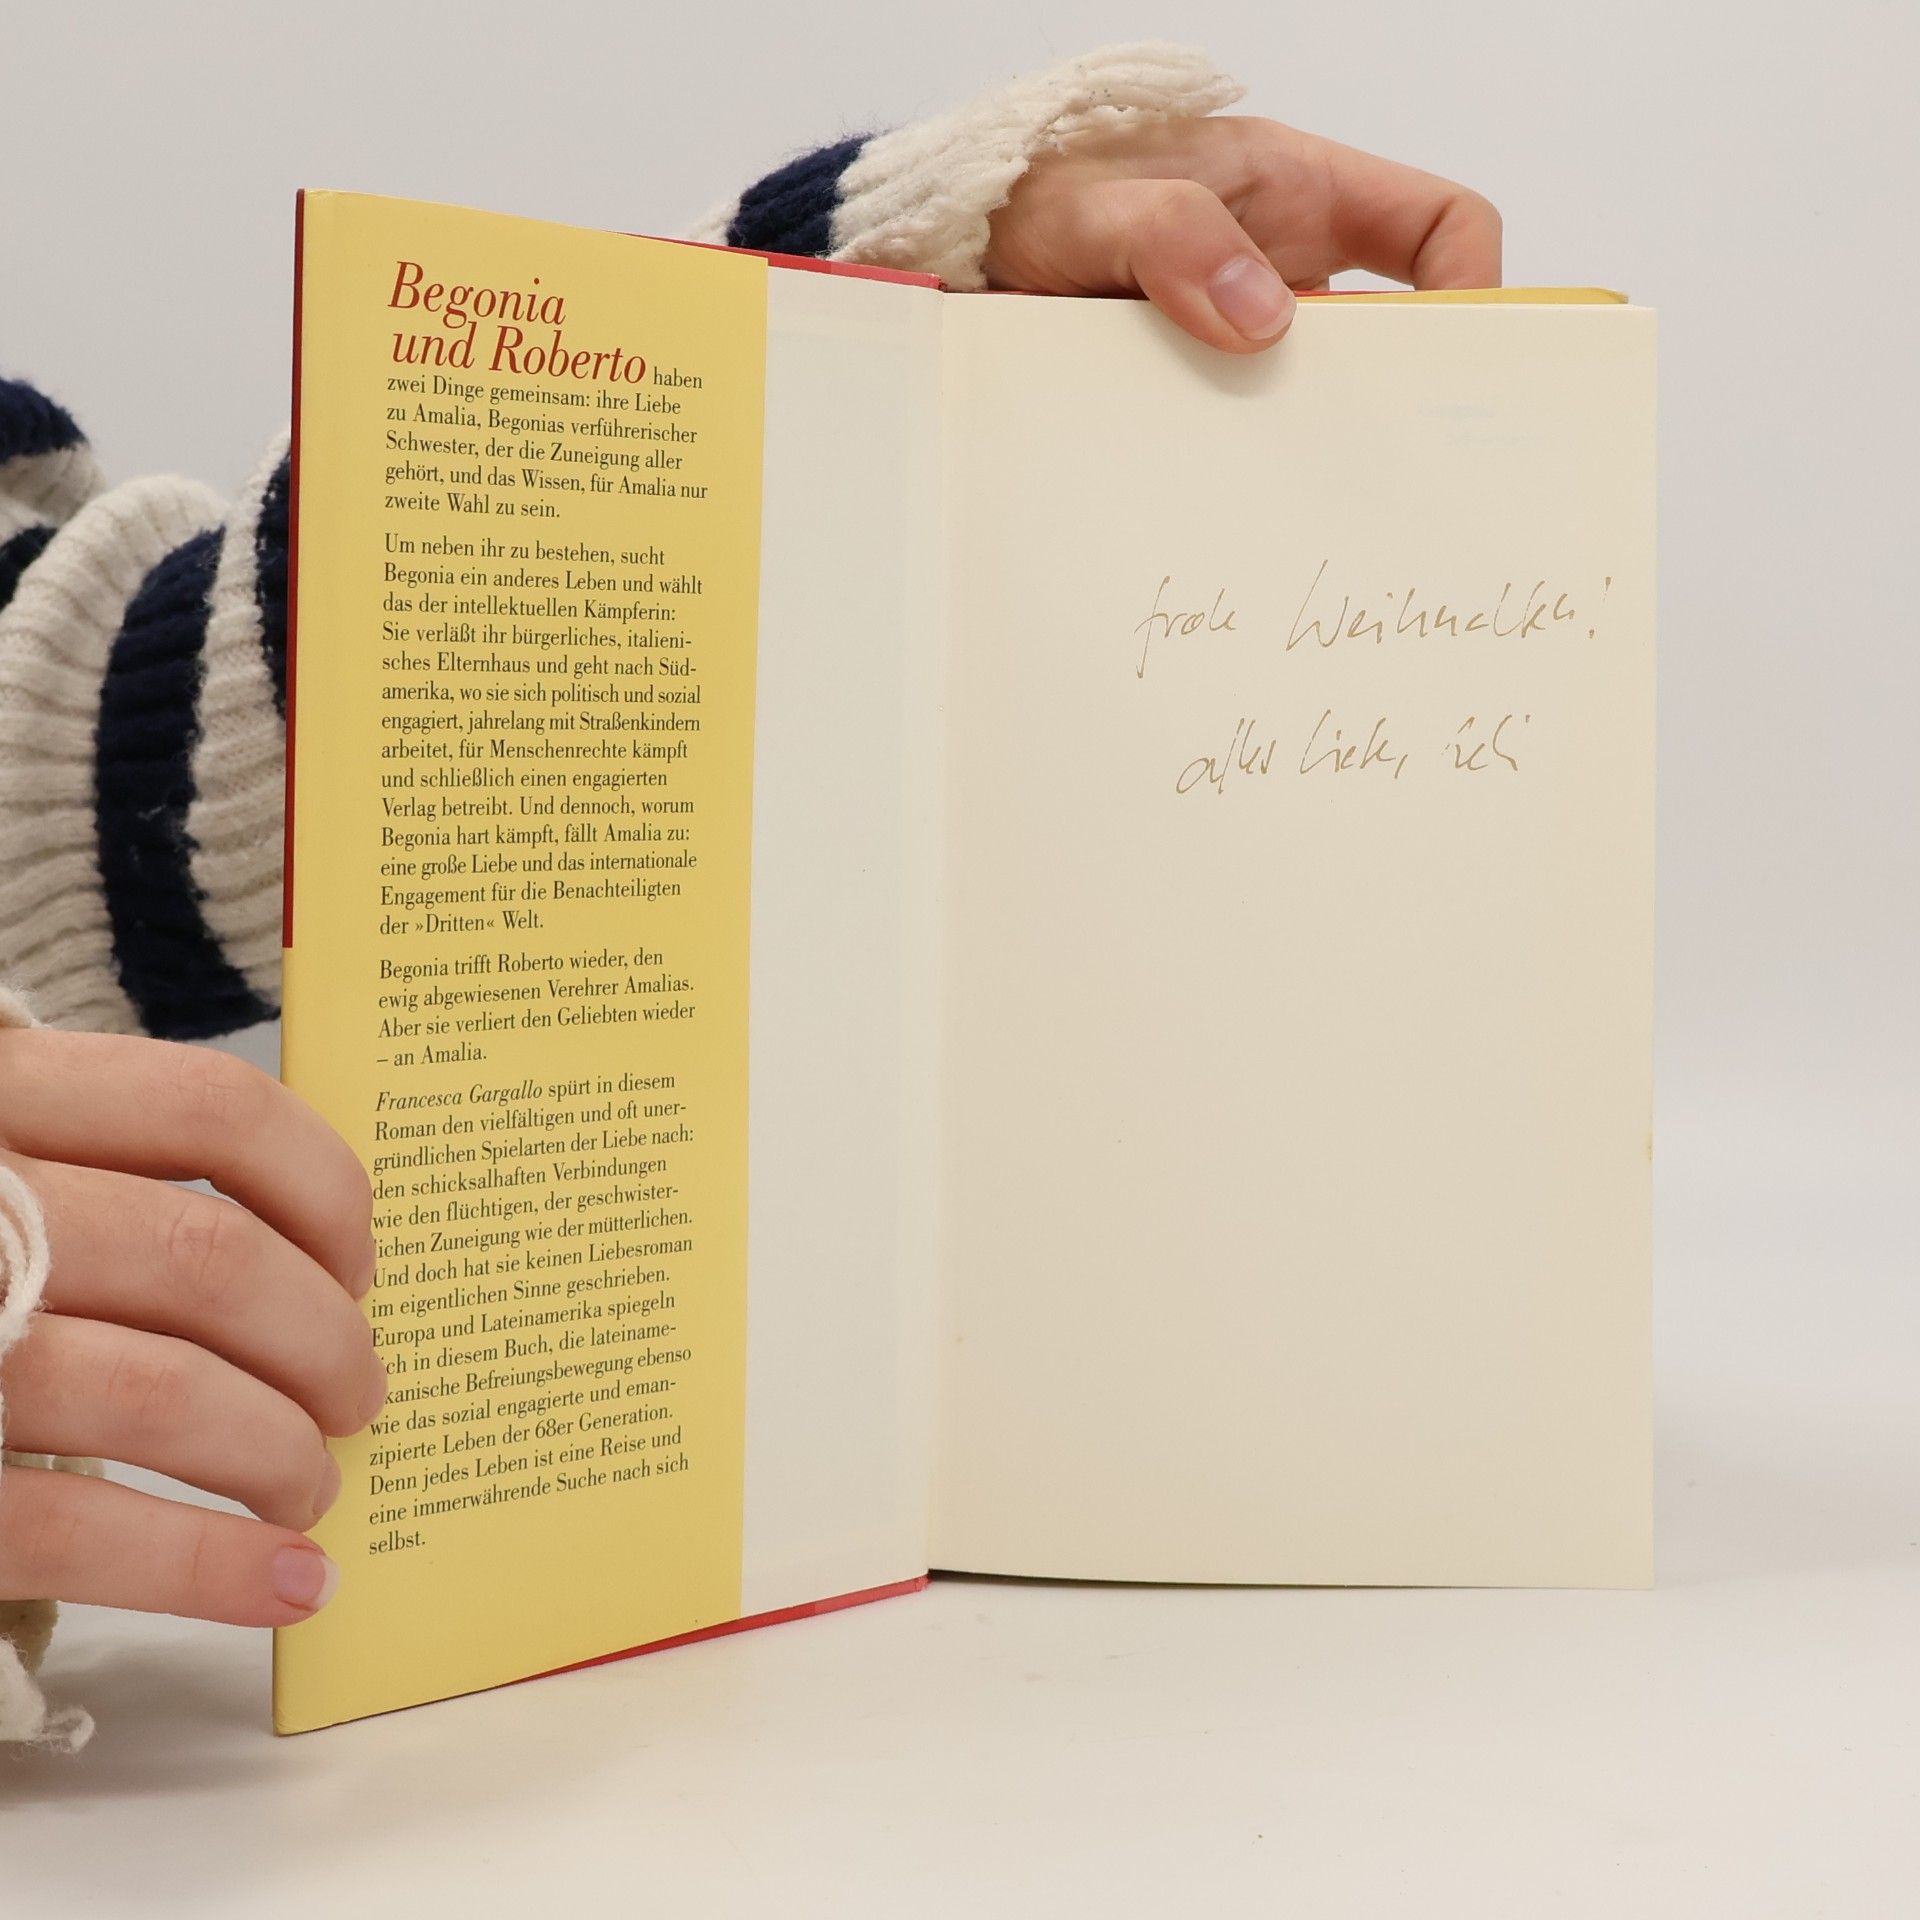 Begonia
und Roberto haben
zwei Dinge gemeinsam: ihre Liebe
zu Amalia, Begonias verführerischer
Schwester, der die Zuneigung aller
gehört, und das Wissen, für Amalia nur
zweite Wahl zu sein.
Um neben ihr zu bestehen, sucht
Begonia ein anderes Leben und wählt
das der intellektuellen Kämpferin:
Sie verläßt ihr bürgerliches, italieni-
sches Elternhaus und geht nach Süd-
amerika, wo sie sich politisch und sozial
engagiert, jahrelang mit Straßenkindern
arbeitet, für Menschenrechte kämpft
und schließlich einen engagierten
Verlag betreibt. Und dennoch, worum
Begonia hart kämpft, fällt Amalia zu:
eine große Liebe und das internationale
Engagement für die Benachteiligten
der »Dritten« Welt.
Begonia trifft Roberto wieder, den
ewig abgewiesenen Verehrer Amalias.
Aber sie verliert den Geliebten wieder
– an Amalia.
Francesca Gargallo spürt in diesem
Roman den vielfältigen und oft uner-
gründlichen Spielarten der Liebe nach:
den schicksalhaften Verbindungen
wie den flüchtigen, der geschwister-
lichen Zuneigung wie der mütterlichen.
Und doch hat sie keinen Liebesroman
im eigentlichen Sinne geschrieben.
Europa und Lateinamerika spiegeln
ich in diesem Buch, die lateiname-
kanische Befreiungsbewegung ebenso
wie das sozial engagierte und eman-
zipierte Leben der 68er Generation.
Denn jedes Leben ist eine Reise und
eine immerwährende Suche nach sich
selbst.
frohe Weihnachten!
alles Liebe,